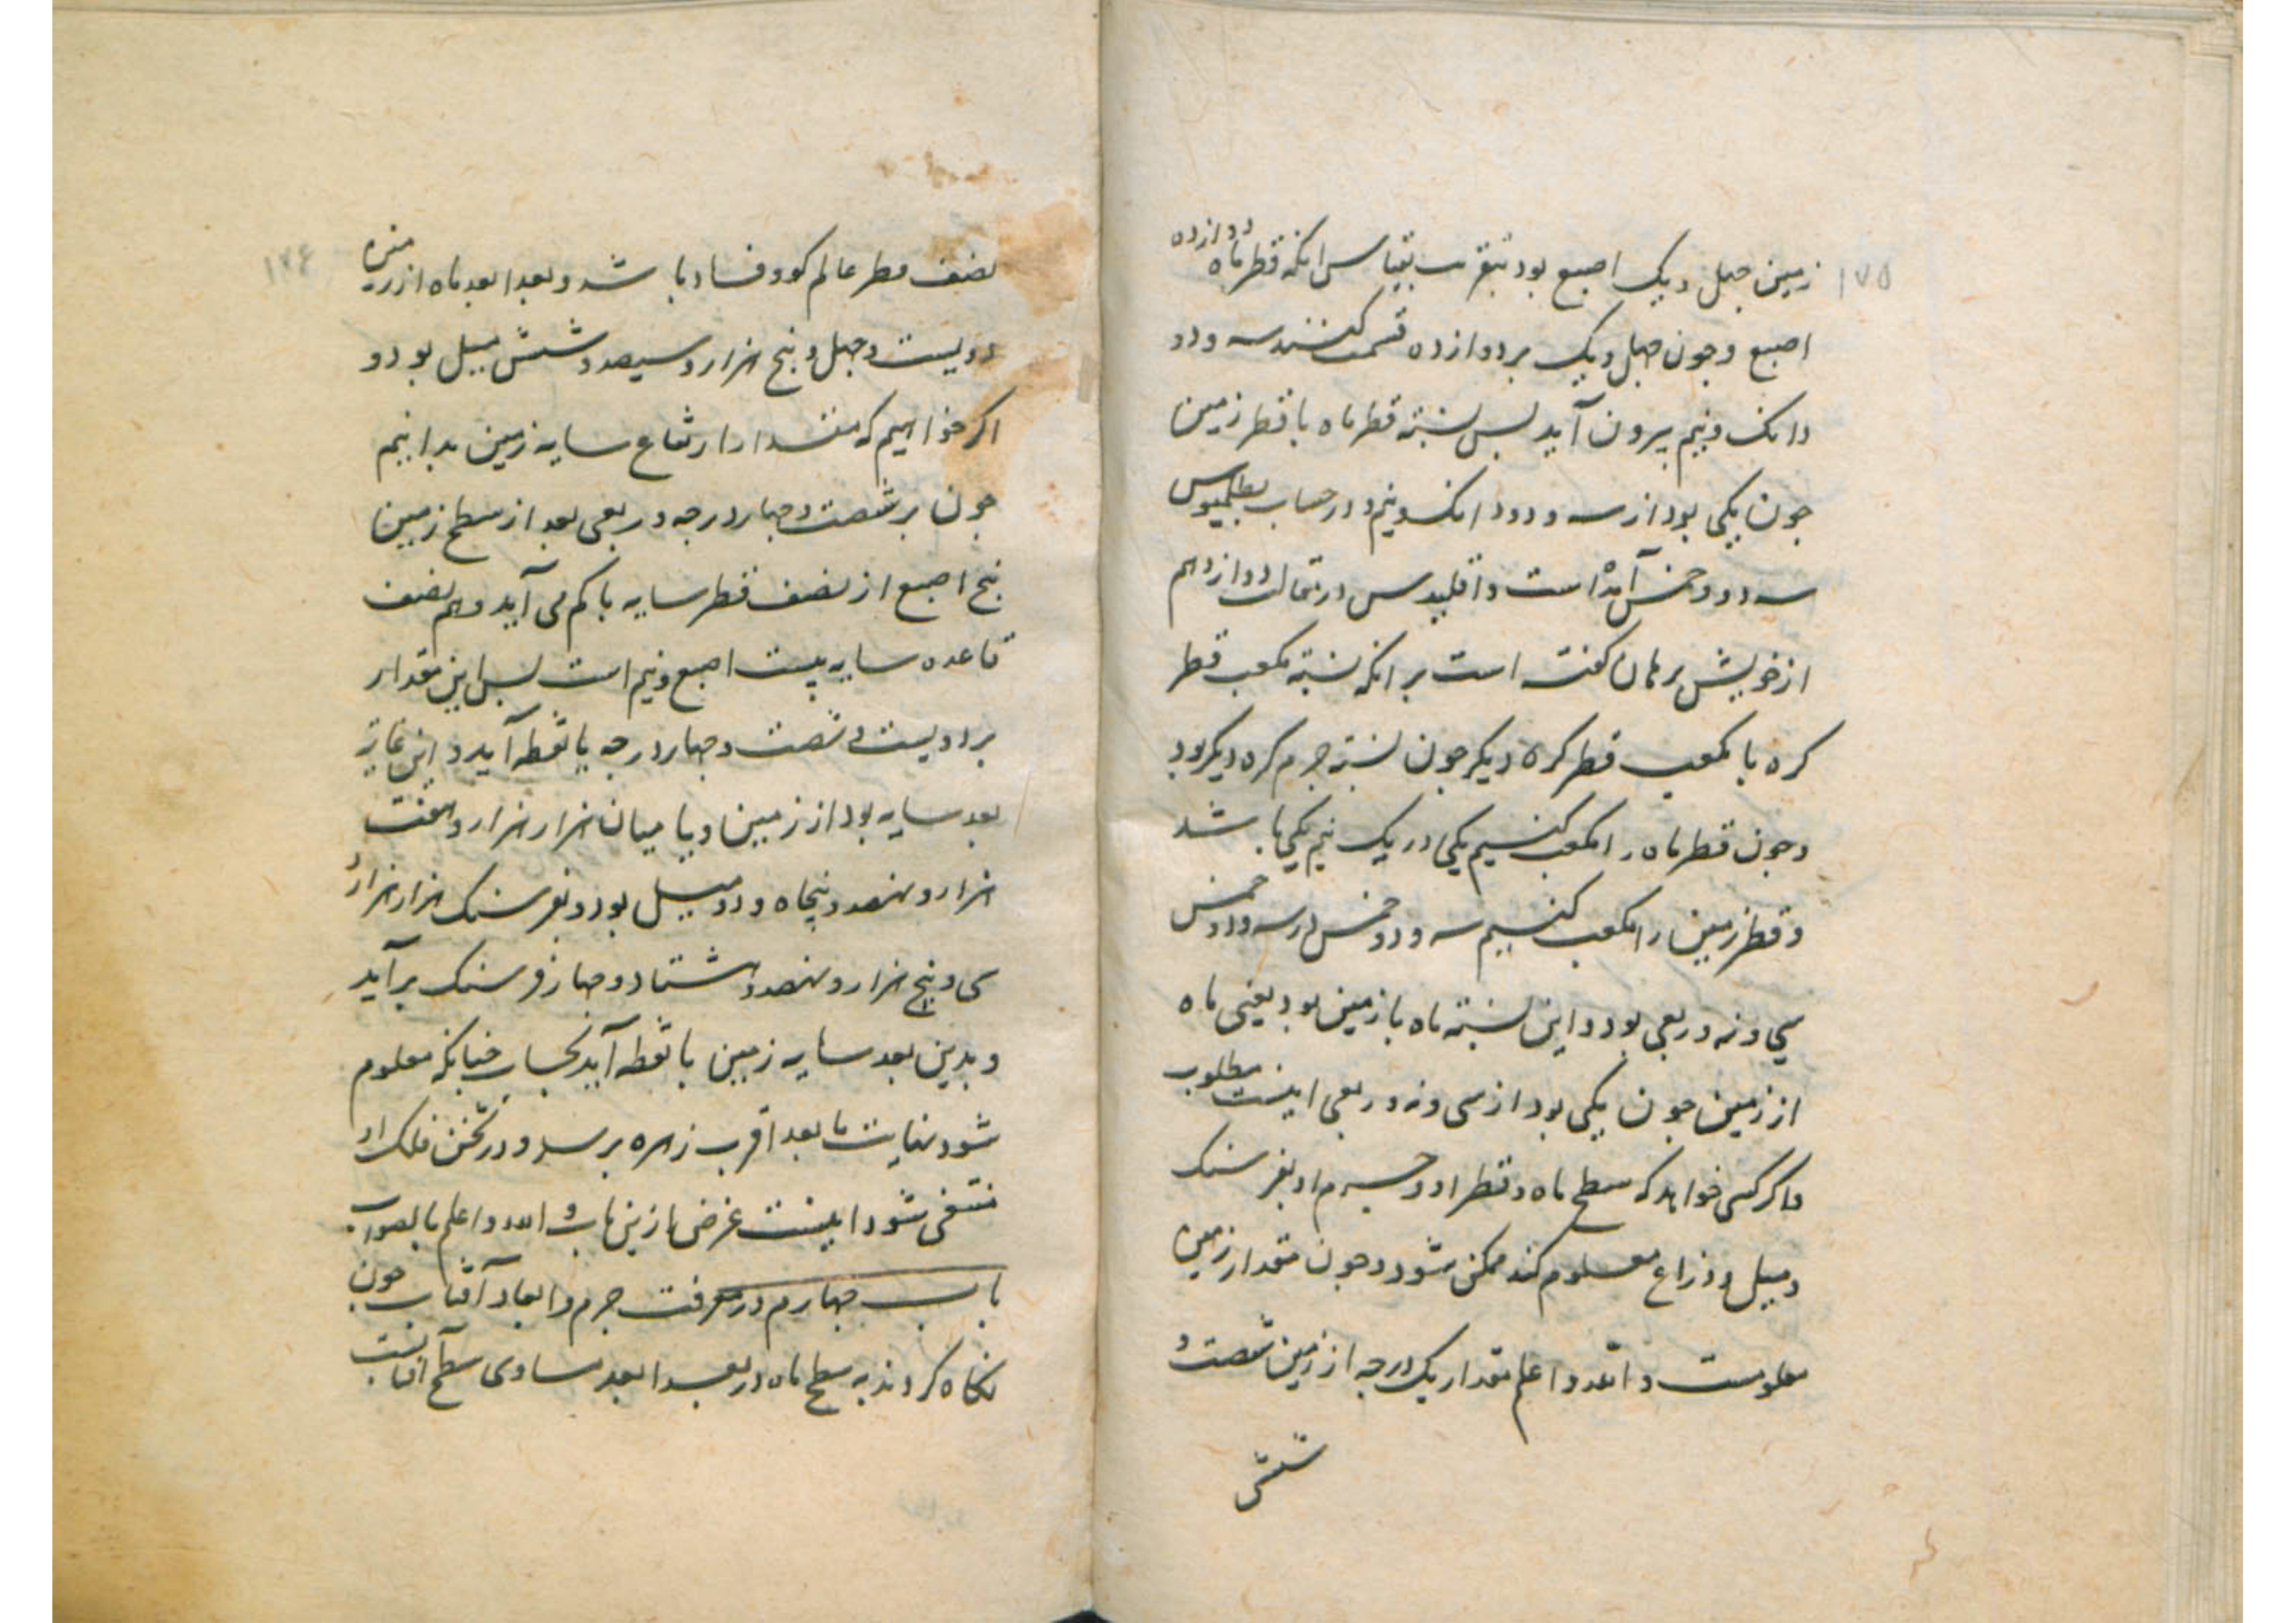 ۱۷۵
زمین جهل ویک اصبع بود بتقریب بقیاس انکه قطر ماه دوازده
اصبع وجون جهل ویک بردوازده قسمت کنند سه ودو
دانک ونیم بیرون آید بس نسبته قطر ماه با قطر زمین
جون یکی بود از سه ودو دانک ونیم ودر حساب بطلمیوس
سه ودو خمس آمده است واقلیدس در مقالت دوازدهم
از خویش برهان کفته است بر انکه نسبته مکعب قطر
کره با مکعب قطر کره دیکر جون نسبته جرم کره دیکر بود
وجون قطر ماه را مکعب کنیم یکی در یک نیم یکی باشد
وقطر زمین را مکعب کنیم سه ودو خمس در سه ودو خمس
سی ونه وربعی بود واین نسبته ماه با زمین بود یعنی ماه
از زمین جون یکی بود از سی ونه وربعی اینست مطلوب
واکر کسی خواهد که سطح ماه وقطر او وجرم او بفرسنک
ومیل وذراع معلوم کند ممکن شود وجون مقدار زمین
معلومست والله واعلم مقدار یک درجه از زمین شصت و
شش
۱۷۶
نصف قطر عالم کون وفساد باشد وبعد ابعد ماه از زمین
دویست وجهل وبنج هزار وسیصد وشش میل بود و
اکر خواهیم که مقدار ارتفاع سایه زمین بدانیم
جون بر شصت وجهار درجه وربعی بعد از سطح زمین
بنج اصبع از نصف قطر سایه با کم می آید وهم نصف
قاعده سایه بیست اصبع ونیم است بس این مقدار
بر دویست وشصت وجهار درجه با نقطه آید واین غایة
بعد سایه بود از زمین وبا میان هزار هزار وهفت
هزار ونهصد وپنجاه ودو میل بود وبفرسنک هزار هزار و
سی وپنج هزار ونهصد وهشتاد وجهار فرسنک برآید
وبدین بعد سایه زمین با نقطه آید بحساب جنانکه معلوم
شود نهایت ما بعد اقرب زهره برسد ودر ثخن فلک او
منتفی شود اینست غرض ما زین باب والله واعلم بالصواب
باب جهارم در معرفت جرم وابعاد آفتاب جون
نکاه کردند به سطح ماه در بعد ابعد مساوی سطح آفتابست